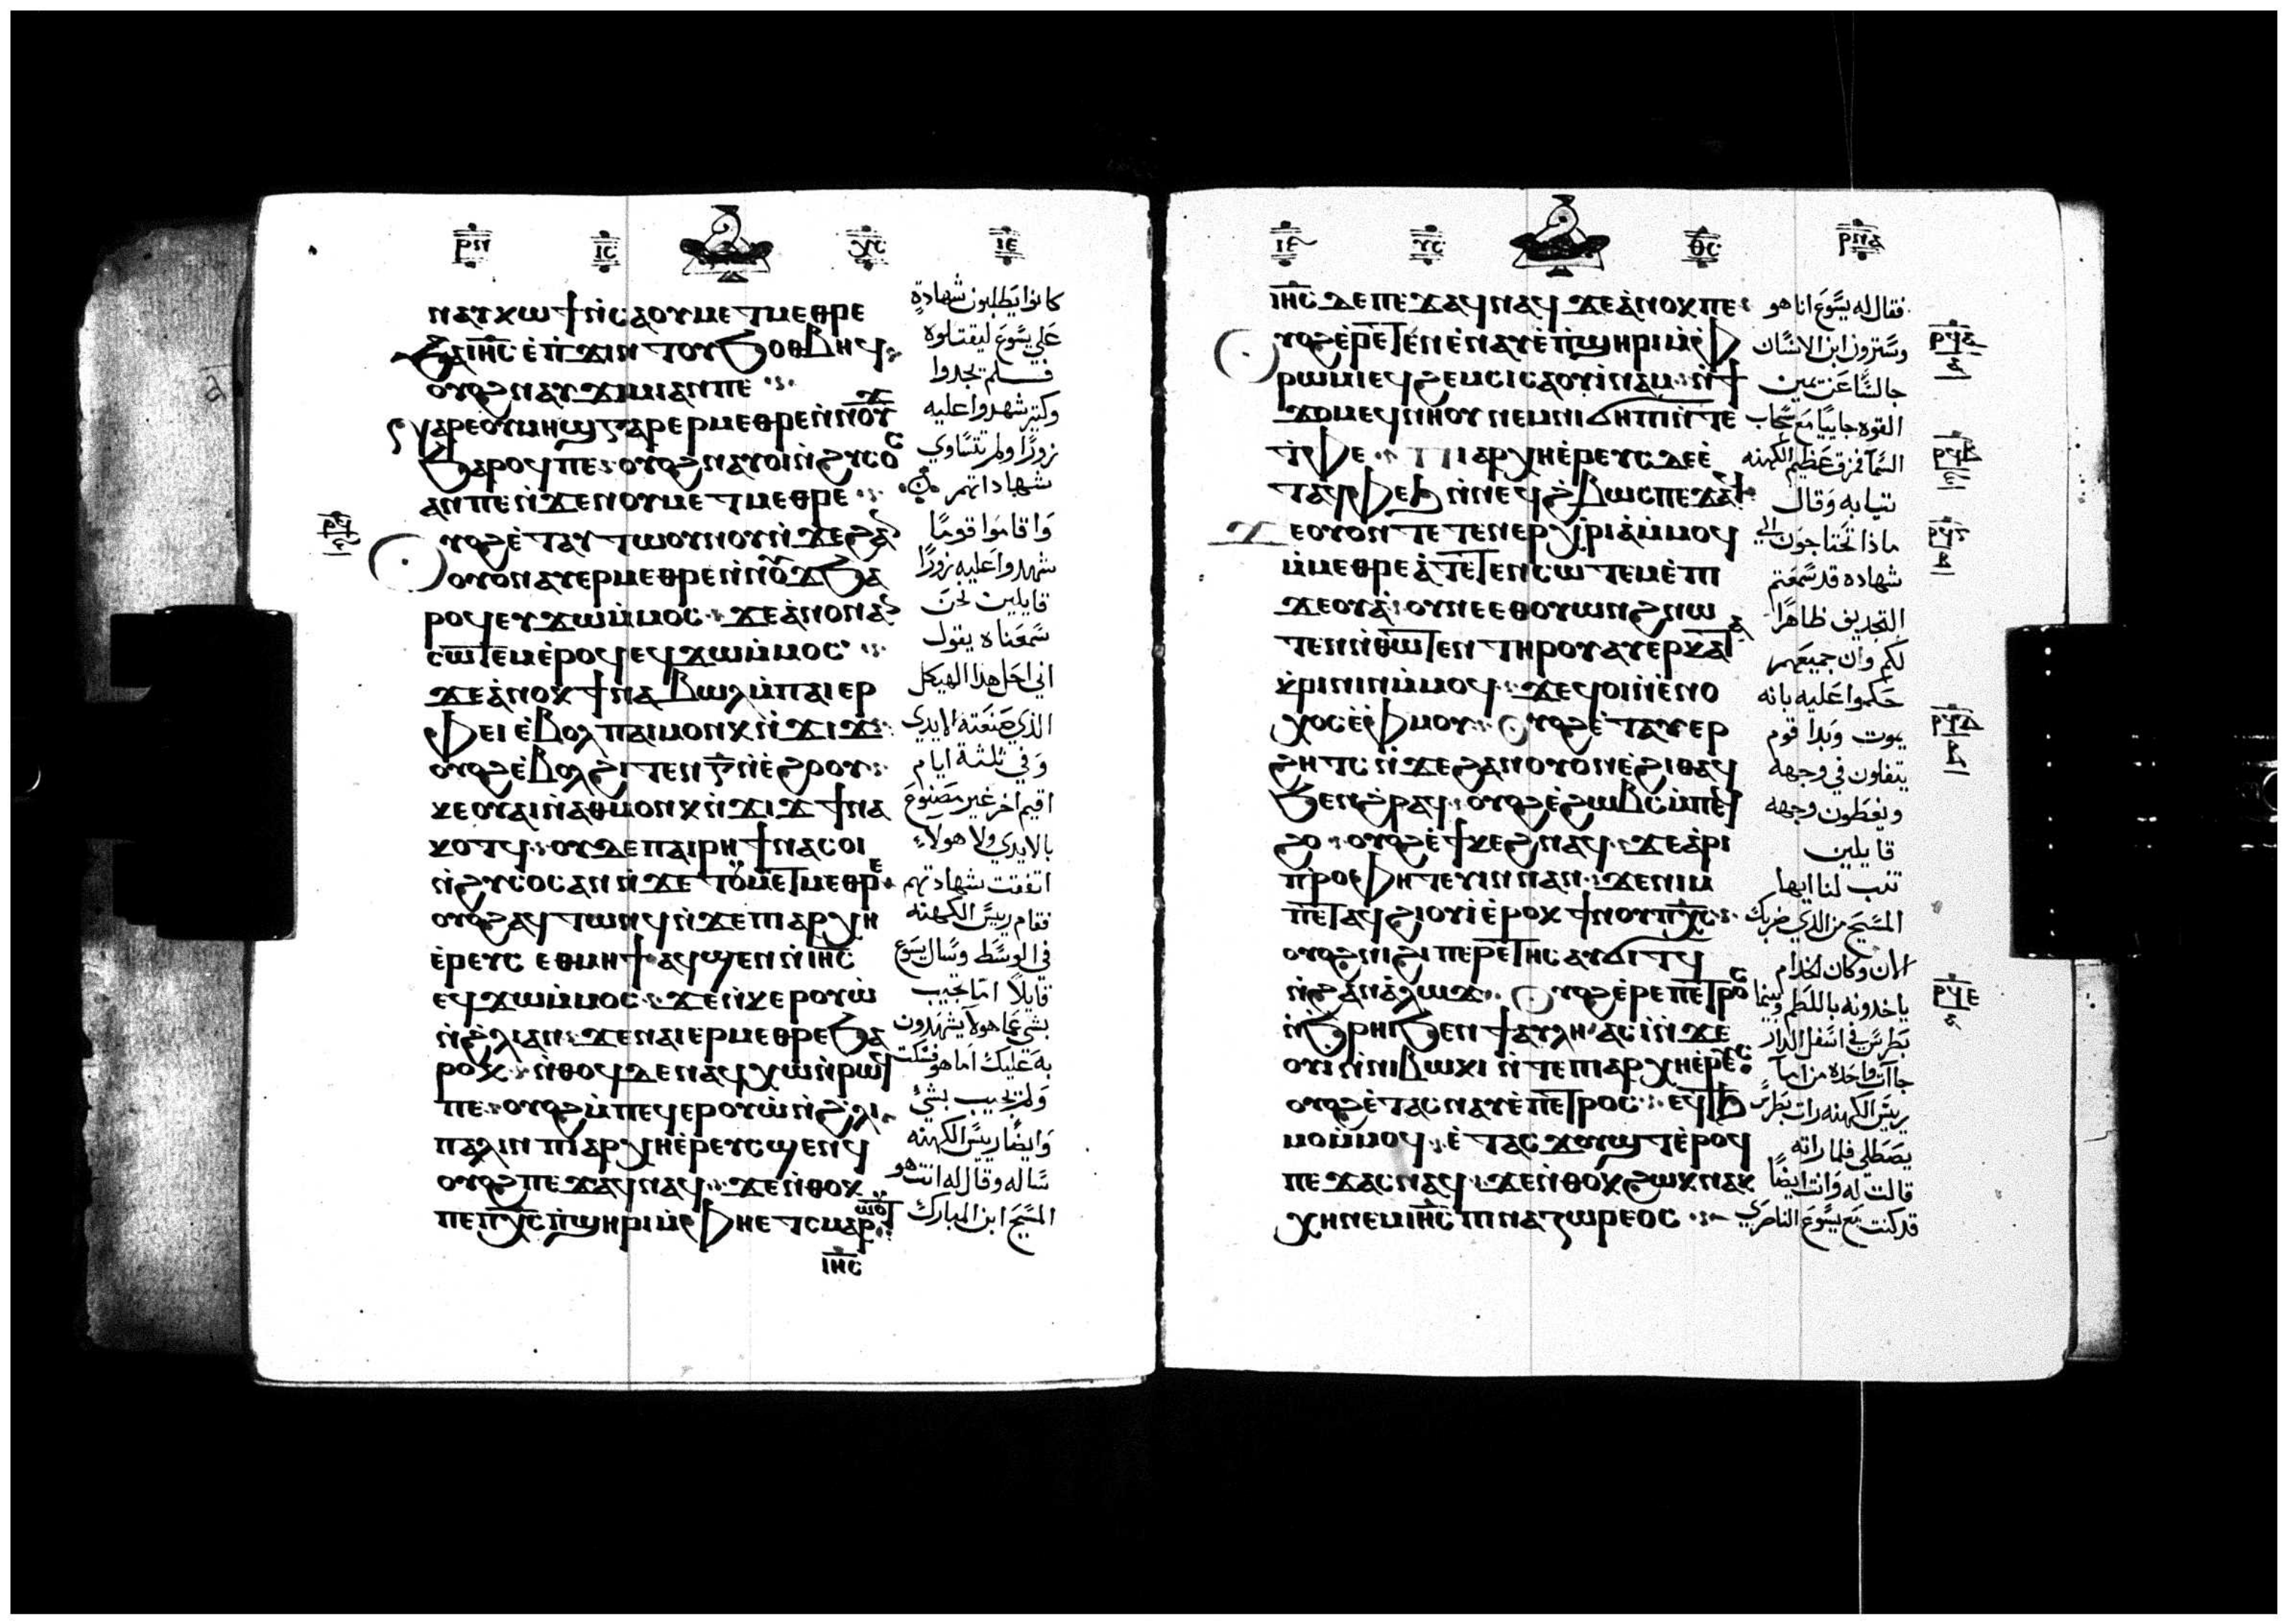 ⲣⲡ ⲓⲥ ⲭⲥ ⲓⲉ
ⲛⲁⲩⲕⲱϯ ⲛⲥⲁⲟⲩⲙⲉⲧⲙⲉⲑⲣⲉ
ϧⲁⲓⲏⲥ ⲉⲡϫⲓⲛⲧⲟⲩϧⲟⲑⲃⲉϥ
ⲟⲩⲟϩ ⲛⲁⲩϫⲓⲙⲓ ⲁⲛⲡⲉ
ⲛⲁⲣⲉⲟⲩⲙⲏϣ ⲅⲁⲣ ⲉⲣⲙⲉⲑⲣⲉ ⲛⲛⲟⲩϫ
ϧⲁⲣⲟϥⲡⲉ ⲟⲩⲟϩ ⲛⲁⲩⲟⲓ ⲛϩⲩⲥⲟⲥ
ⲁⲛⲡⲉ ⲛϫⲉⲛⲟⲩⲙⲉⲧⲙⲉⲑⲣⲉ
ⲟⲩⲟϩ ⲉⲧⲁⲩⲧⲱⲟⲩⲛⲟⲩ ⲛϫⲉϩⲁⲛ
ⲟⲩⲟⲛ ⲁⲩⲉⲣⲙⲉⲑⲣⲉ ⲛⲛⲟⲩϫ ϧⲁ
ⲣⲟϥ ⲉⲩϫⲱⲙⲙⲟⲥ ϫⲉⲁⲛⲟⲛ ⲁⲛ
ⲥⲱⲧⲉⲙ ⲉⲣⲟϥ ⲉϥϫⲱⲙⲙⲟⲥ
ϫⲉⲁⲛⲟⲕ ϯⲛⲁⲃⲱⲗ ⲙⲡⲁⲓⲉⲣ
ⲫⲉⲓ ⲉⲃⲟⲗ ⲡⲁⲓⲙⲟⲛⲕ ⲛϫⲓϫ
ⲟⲩⲟϩ ⲉⲃⲟⲗϩⲓⲧⲉⲛ ⲅ ⲛⲉϩⲟⲟⲩ
ⲕⲉⲟⲩⲁⲓ ⲛⲁⲑⲙⲟⲛⲕ ⲛϫⲓϫ ϯⲛⲁ
ⲕⲟⲧϥ ⲟⲩⲇⲉ ⲡⲁⲓⲣⲏϯ ⲛⲁⲥⲟⲓ
ⲛϩⲩⲥⲟⲥ ⲁⲛ ⲛϫⲉ ⲧⲟⲩⲙⲉⲧⲙⲉⲑⲣⲉ
ⲟⲩⲟϩ ⲁϥⲧⲱⲛϥ ⲛϫⲉⲡⲓⲁⲣⲭⲏ
ⲉⲣⲉⲩⲥ ⲉⲑⲙⲏϯ ⲁϥϣⲉⲛ ⲛⲓⲏⲥ
ⲉϥϫⲱⲙⲙⲟⲥ ϫⲉⲛⲕⲉⲣⲟⲩⲱ
ⲛϩⲗⲓⲁⲛ ϫⲉⲛⲁⲓⲉⲣⲙⲉⲑⲣⲉ ϧⲁ
ⲣⲟⲕ ⲛⲑⲟϥ ⲇⲉ ⲛⲁϥⲭⲱ ⲛⲣⲱϥ
ⲡⲉ ⲟⲩⲟϩ ⲙⲡⲉϥⲉⲣⲟⲩⲱ ⲛϩⲗⲓ
ⲡⲁⲗⲓⲛ ⲡⲓⲁⲣⲭⲏⲉⲣⲉⲩⲥ ϣⲉⲛϥ
ⲟⲩⲟϩ ⲡⲉϫⲁϥ ⲛⲁϥ ϫⲉⲛⲑⲟⲕ
ⲡⲉⲡⲭⲥ ⲡϣⲏⲣⲓ ⲙⲫⲏⲉⲧⲥⲙⲁⲣⲱⲟⲩⲧ
ⲓⲏⲥ
كانوا يطلبون شهادة
على يسوع ليقتلوه
فلم يجدوا
وكثير شهدوا عليه
زورا ولم تتساوي
شهاداتهم
واقاموا قوما
شهدوا عليه زورا
قايلين نحن
سمعناه يقول
اني احل هذا الهيكل
الذي صنعته الايدي
وفي ثلثة ايام
اقيم اخر غير مصنوع
بالايدي ولا هولاء
اتفقت شهادتهم
فقام رييس الكهنه
في الوسط وسال يسوع
قايلا اما تجيب
بشي عما هولا يشهدون
به عليك اما هو فسكت
ولم يجيب بشئ
وايضا رييس الكهنه
ساله وقال له انت هو
المسيح ابن المبارك
ⲓⲉ ⲩⲥ ⲑⲥ ⲣⲡⲁ
ⲓⲏⲥ ⲇⲉ ⲡⲉϫⲁϥ ⲛⲁϥ ϫⲉⲁⲛⲟⲕ ⲡⲉ
ⲟⲩⲟϩ ⲉⲣⲉⲧⲉⲛⲉⲛⲁⲩ ⲉⲡϣⲏⲣⲓ ⲙⲫ
ⲣⲱⲙⲓ ⲉϥϩⲉⲙⲥⲓ ⲥⲁⲟⲩⲓⲛⲁⲙ ⲛϯ
ϫⲟⲙ ⲉϥⲛⲏⲟⲩ ⲛⲉⲙ ⲛⲓϭⲏⲡⲓ ⲛⲧⲉ
ⲧⲫⲉ ⲡⲓⲁⲣⲭⲏⲉⲣⲉⲩⲥ ⲇⲉ ⲉ
ⲧⲁϥⲫⲉϧ ⲛⲛⲉϥϩⲃⲱⲥ ⲡⲉϫⲁϥ
ϫⲉⲟⲩⲟⲛ ⲧⲉⲧⲉⲛⲉⲣⲭⲣⲓⲁ ⲙⲙⲟϥ
ⲙⲙⲉⲑⲣⲉ ⲁⲧⲉⲧⲉⲛⲥⲱⲧⲉⲙ ⲉⲡⲓ
ϫⲉⲟⲩⲁ ⲟⲩⲛⲉⲉⲑⲟⲩⲱⲛϩ ⲛⲱ
ⲧⲉⲛ ⲛⲑⲱⲟⲩ ⲇⲉ ⲧⲏⲣⲟⲩ ⲁⲩⲉⲣⲕⲁⲧⲁ
ⲕⲣⲓⲛⲓⲛ ⲙⲙⲟϥ ϫⲉϥⲟⲓ ⲛⲉⲛⲟ
ⲭⲟⲥ ⲉⲫⲙⲟⲩ ⲟⲩⲟϩ ⲉⲧⲁⲩⲉⲣ
ϩⲏⲧⲥ ⲛϫⲉϩⲁⲛⲟⲩⲟⲛ ⲉϩⲓⲑⲁϥ
ϧⲉⲛϩⲣⲁϥ ⲟⲩⲟϩ ⲉϩⲱⲃⲥ ⲙⲡⲉϥ
ϩⲟ ⲟⲩⲟϩ ⲉϯⲕⲉϩ ⲛⲁϥ ϫⲉⲁⲣⲓ
ⲡⲣⲟⲫⲏⲧⲉⲩⲓⲛ ⲛⲁⲛ ϫⲉⲛⲓⲙ
ⲡⲉⲧⲁϥϩⲓⲟⲩⲓ ⲉⲣⲟⲕ ϯⲛⲟⲩ ⲡⲭⲥ
ⲟⲩⲟϩ ⲛⲓϩⲓⲡⲉⲣⲉⲧⲏⲥ ⲁⲩϭⲓⲧϥ
ⲛϩⲁⲛⲁⲗⲱϫ ⲟⲩⲟϩ ⲉⲣⲉ ⲡⲉⲧⲣⲟⲥ
ⲛϧⲣⲏ ϧⲉⲛ ϯⲁⲩⲗⲏ ⲁⲥⲓ ⲛϫⲉ
ⲟⲩⲓ ⲛⲛⲓⲃⲱⲕⲓ ⲛⲧⲉ ⲡⲓⲁⲣⲭⲏⲉⲣⲉⲩⲥ
ⲟⲩⲟϩ ⲉⲧⲁⲥⲛⲁⲩ ⲉⲡⲉⲧⲣⲟⲥ ⲉϥϧ
ⲙⲟⲙ ⲙⲙⲟϥ ⲉⲧⲁⲥϫⲟⲩϣⲧ ⲉⲣⲟϥ
ⲡⲉϫⲁⲥ ⲛⲁϥ ϫⲉⲛⲑⲟⲕ ϩⲱⲕ ⲛⲁⲕ
ⲭⲏ ⲛⲉⲙ ⲓⲏⲥ ⲡⲓⲛⲁⲍⲱⲣⲉⲟⲥ
فقال له يسوع انا هو
وسترون ابن الانسان
جالسا عن يمين
القوه جاييا مع سحاب
السما فمزق عظيم الكهنه
ثيابه وقال
ماذا تحتاجون الي
شهاده قد سمعتم
التجديف ظاهرا
لكم وان جميعهم
حكموا عليه بانه
يموت وبدا قوم
يتفلون في وجهه
ويغطون وجهه
قايلين
تنب لنا ايها
المسيح من الذي ضربك
الان وكان الخدام
ياخدونه باللطم وبينما
بطرس في اسفل الدار
جاات واحده من اما
رييس الكهنه رات بطرس
يصطلي فلما راته
قالت له وانت ايضا
قد كنت مع يسوع الناصري